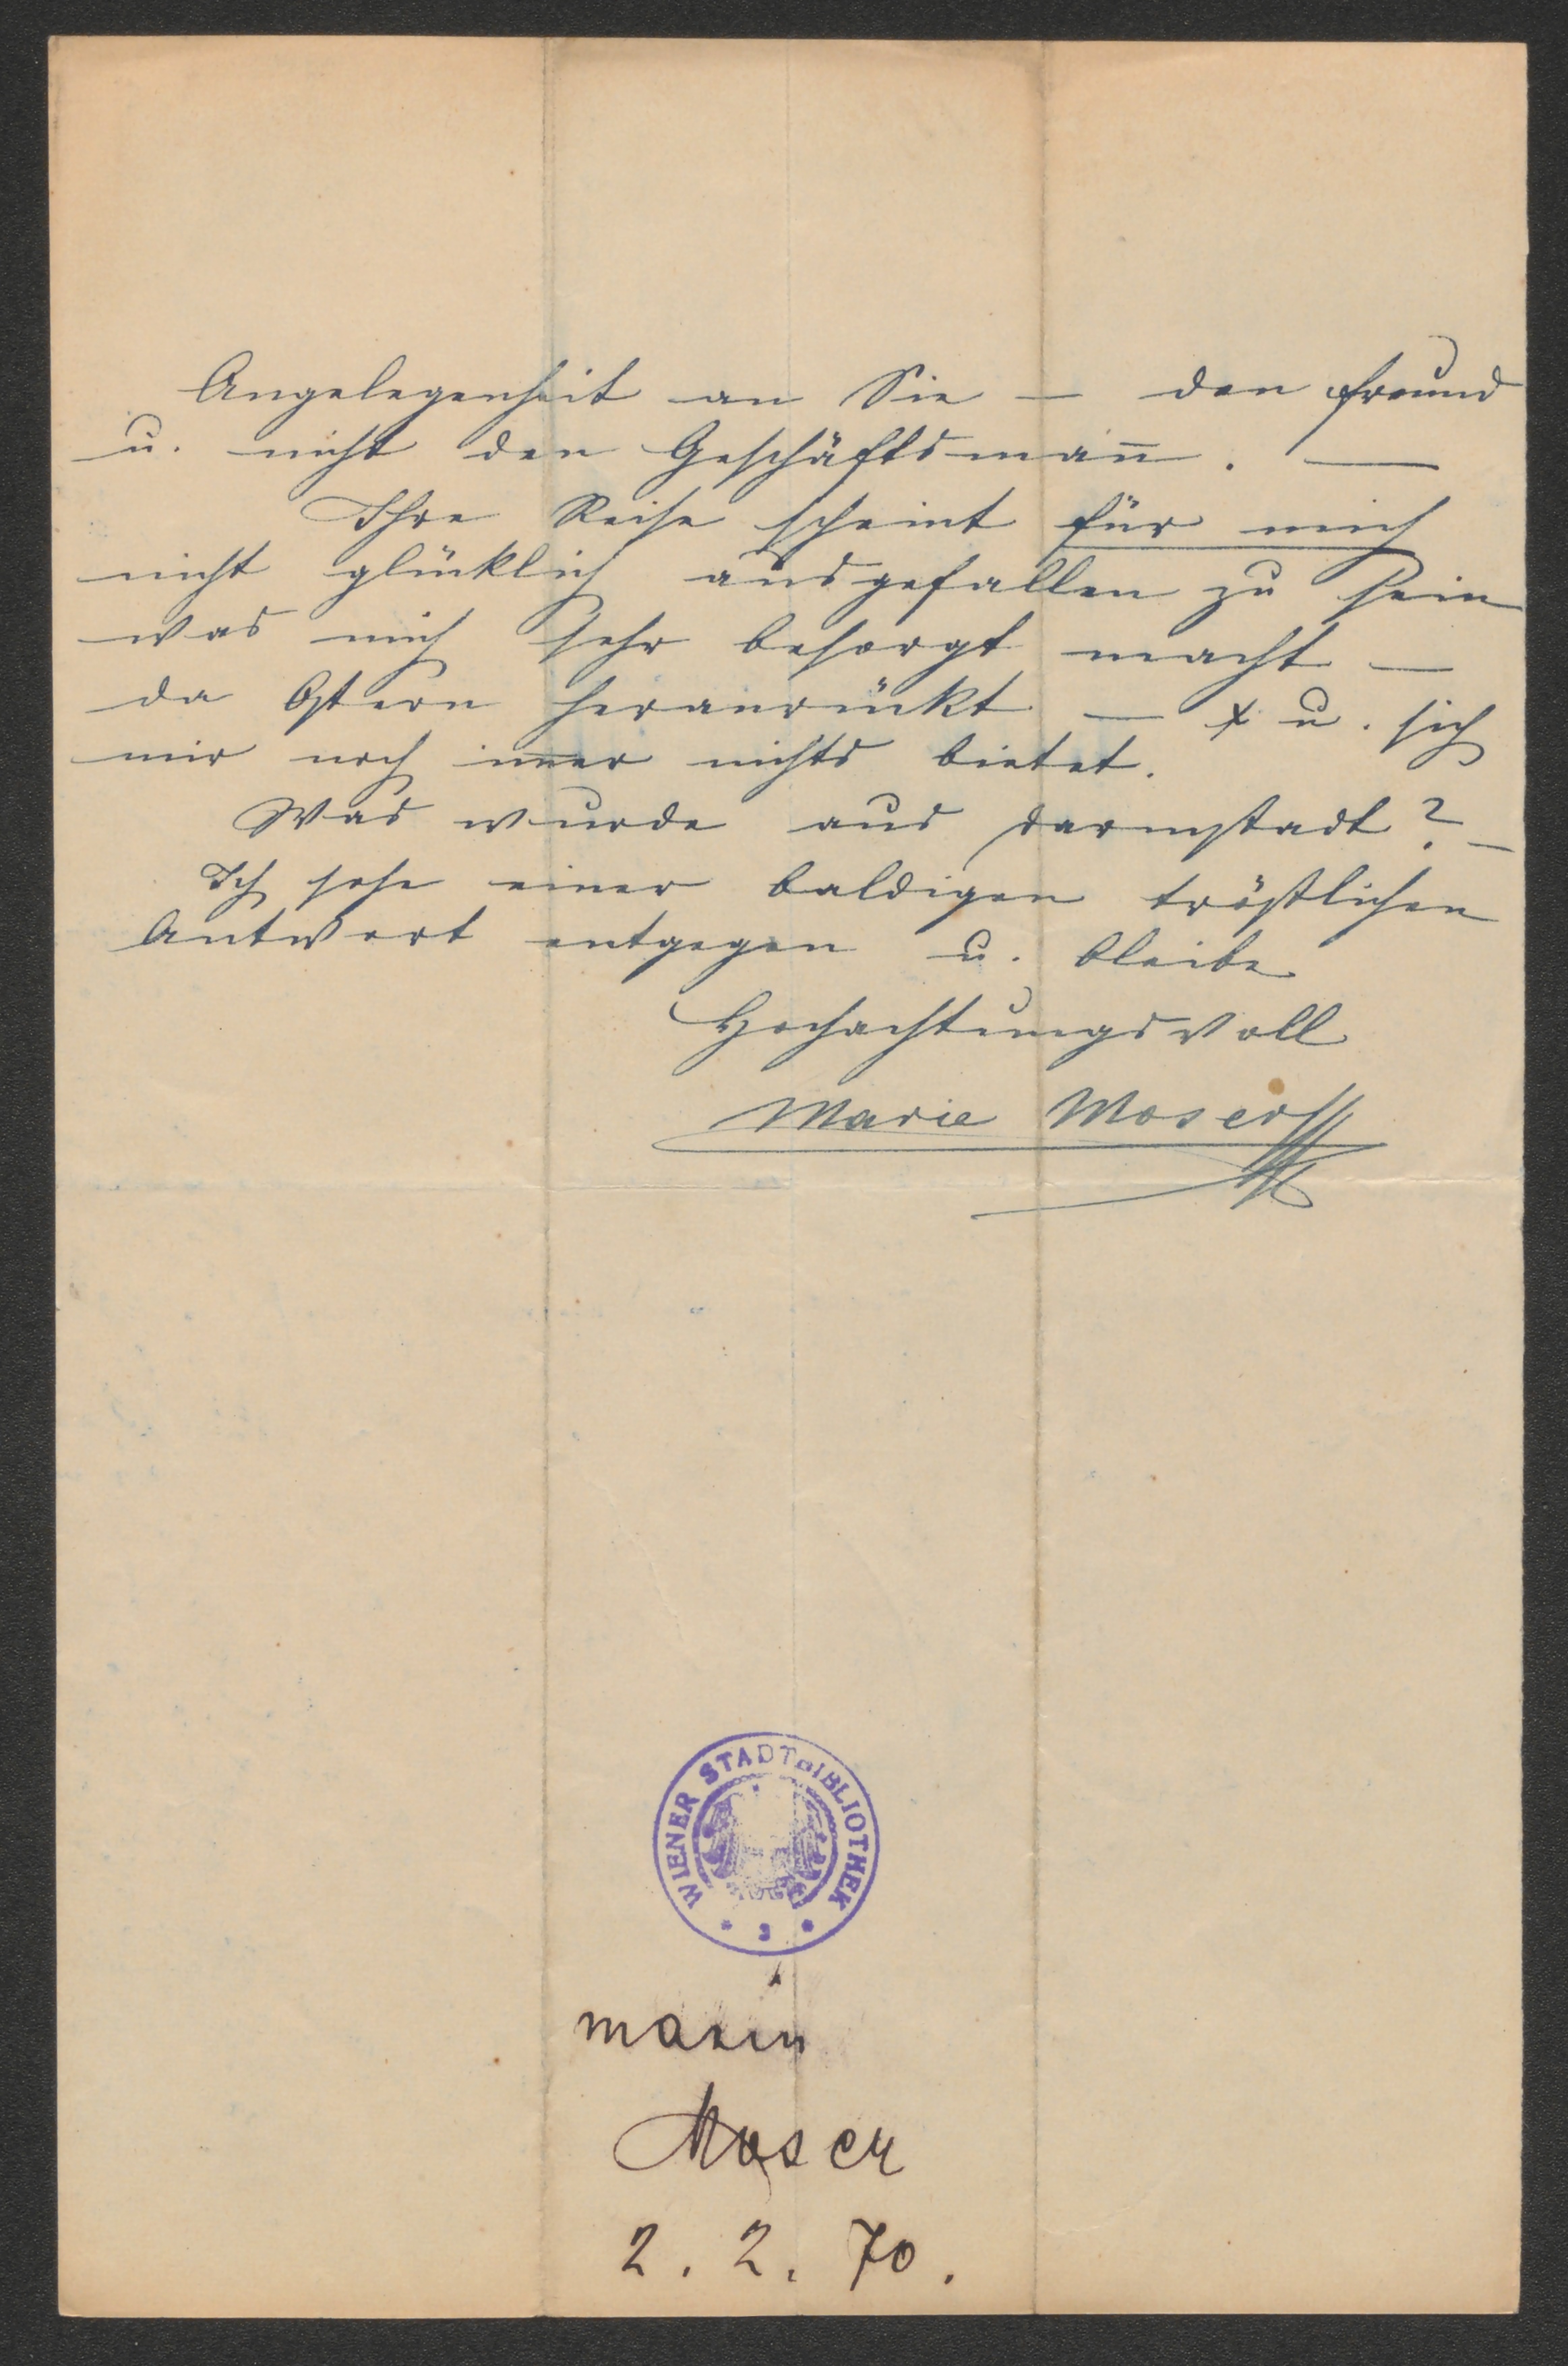 Angelegenheit an Sie — den Freund
u. nicht den Geschäftsmañ. —
Ihre Reise scheint für mich
nicht glücklich ausgefallen zu sein
was mich sehr besorgt macht —
da Ostern heranrückt — x u. sich
mir noch im̅er nichts bietet.
Was wurde aus Darmstadt? —
Ich sehe einer baldigen tröstlichen
Antwort entgegen u. bleibe
Hochachtungsvoll
Marie Moser
WIENER STADTBIBLIOTHEK
* 3 *
Moser
2. 2. 70.